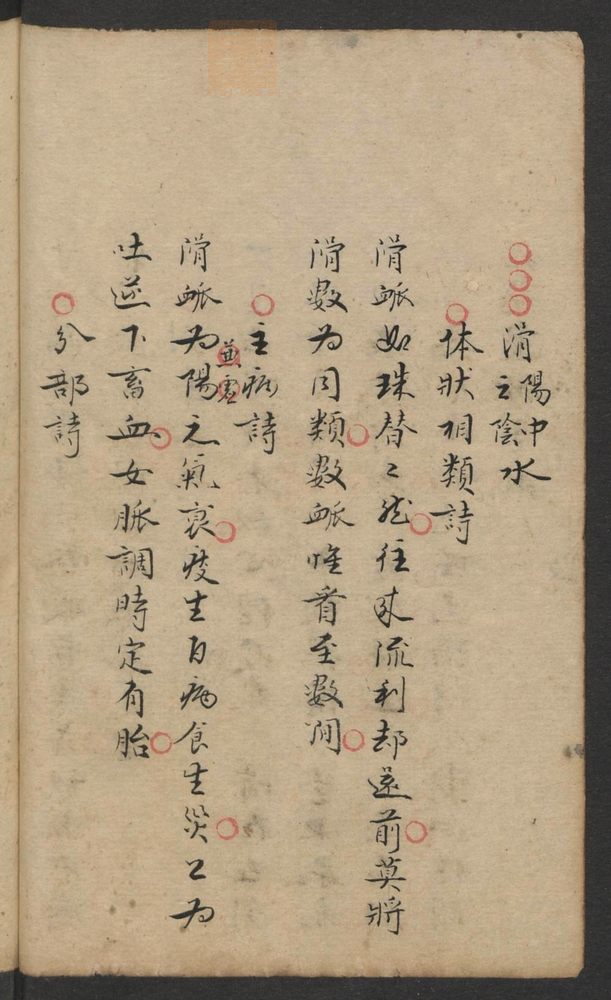 滑 陽中之陰 水
体狀相類詩
滑衇如珠替〻然往來流利却還前莫將
滑數為同類數衇惟看至數間
主病詩
滑衇為陽元氣衰痰生百病食生災上為
吐逆下畜血女脈調時定有胎
分部詩